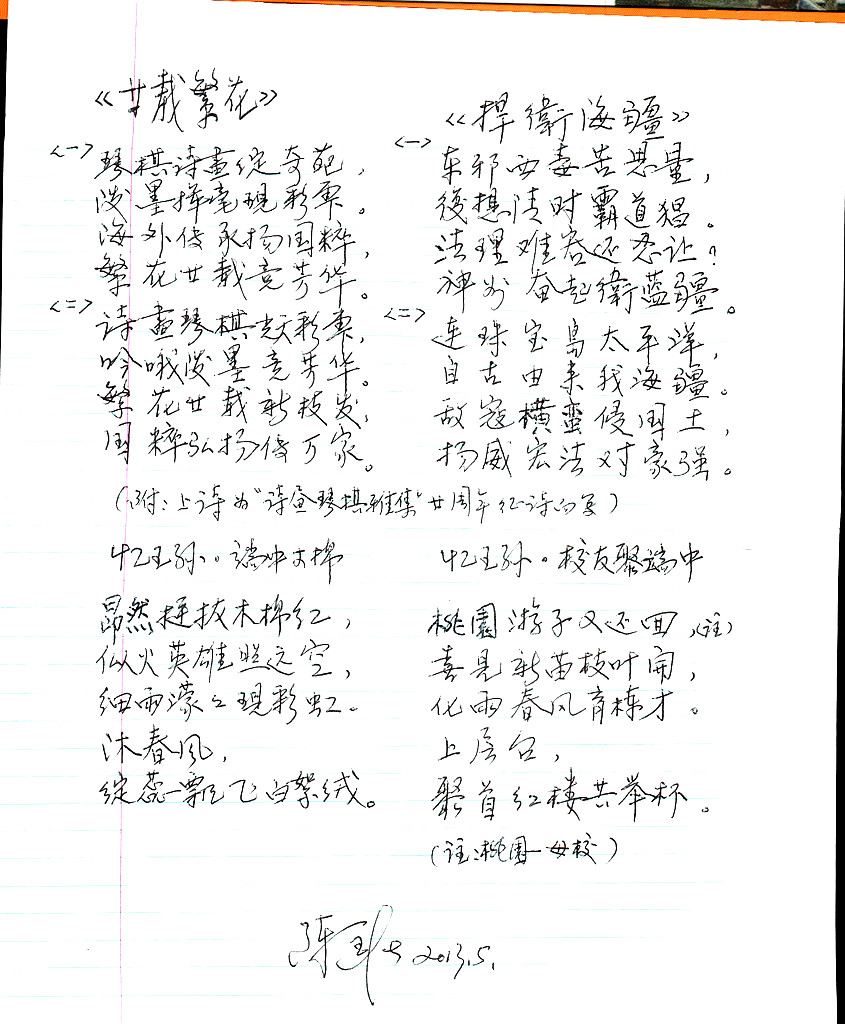 《廿载繁花》
<一>
琴棋诗画绽奇葩，
泼墨挥毫现彩霞。
海外传承扬国粹，
繁花廿载竞芳华。
<二>
诗画琴棋焕彩霞，
吟哦泼墨竞芳华。
繁花廿载新枝发，
国粹弘扬传万家。
(附：上诗为"诗画琴棋雅集"廿周年征诗而写)
《捍衛海疆》
<一>
东邪西毒苦思量，
後想陆时霸道猖。
法理难容还忍让？
神州奋起衛蓝疆。
<二>
连珠宝岛太平洋，
自古由来我海疆。
敌寇横蛮侵国土，
扬威宏法对豪强。
忆王孙。端中木棉
昂然挺拔木棉红，
似火英雄照远空，
细雨濛々现彩虹。
沐春风，
绽蕊飘飞白絮绒。
忆王孙。校友聚端中
桃園游子又还回，(註)
喜見新苗枝叶開，
化雨春风育栋才。
上层台，
聚首红楼共举杯。
(註：桃園—母校)
陈 2013.5.